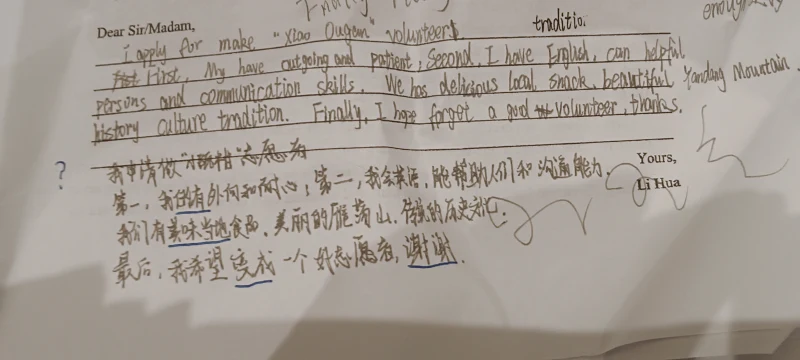 traditio.
Dear Sir/Madam,
i apply for make "Xiao Ougan" volunteers.
First First, My have outgoing and patient; Second, I have English, can helpful
persons and communication skills. We has delicious local snack, beautiful Yandang Mountain,
history culture tradition. Finally, I hope forget a good volunteer, thanks.
我申请做"小瓯柑"志愿者
? 第一，我的有外向和耐心；第二，我会英语，能帮助人们和沟通能力。
Yours,
我们有美味当地食品，美丽的雁荡山，传统的历史文化。
Li Hua
最后，我希望变成一个好志愿者，谢谢.